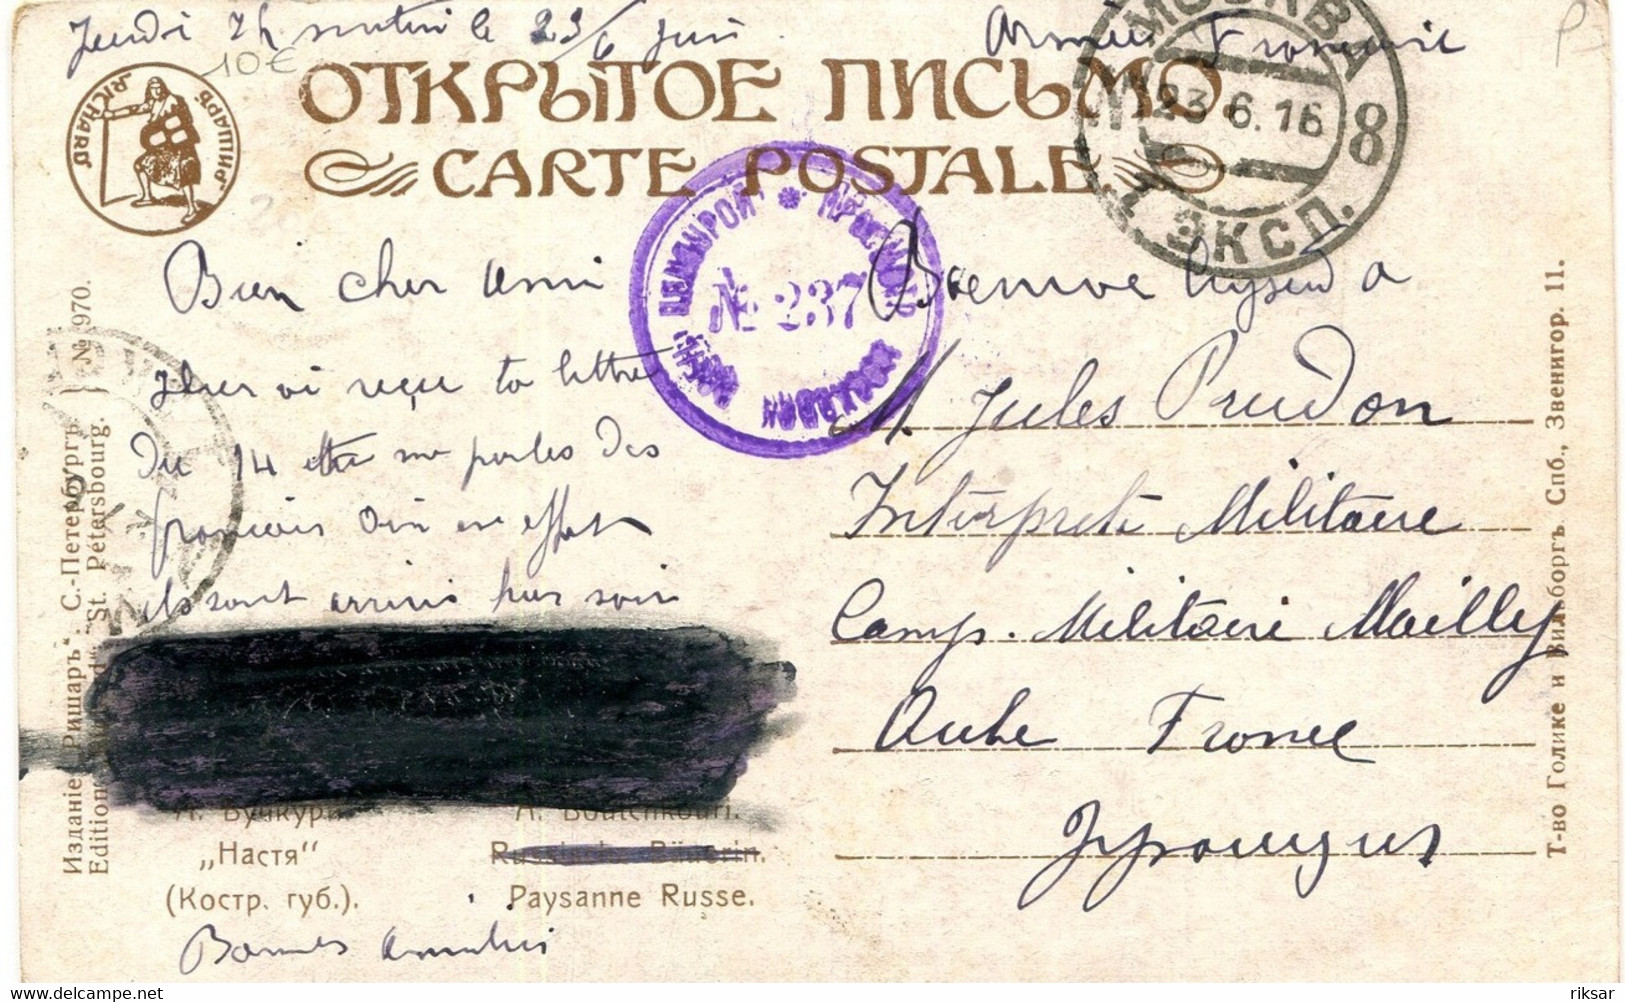 Jeudi 7h matin le 23/6 Juin
Armée Française
10€
ОТКРЫТОЕ ПИСЬМО
CARTE POSTALE.
РИШАРЪ RICHARD
МОСКВА
23 6. 16
8
1. ЭКСП.
№ 237
Bien cher Ami
Hier ai reçu ta lettre
du 14 et tu me parles des
français Oui en effet
ils sont arrivés hier soir
А. Бучкури.
A. Boutchkouri.
„Настя“
Russische Bäuerin.
(Костр. губ.).
Paysanne Russe.
Bonnes amitiés
M. Jules Prudon
Interprète Militaire
Camp. Militaire Mailly
Aube France
Изданіе „Ришаръ“. С.-Петербургъ.
St. Pétersbourg.
№ 970.
Т-во Голике и Вильборгъ Спб., Звенигор. 11.
delcampe.net
riksar